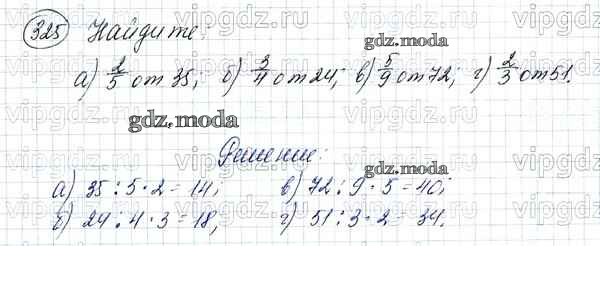 325 Найдите:
а) 2/5 от 35; б) 3/4 от 24; в) 5/9 от 72; г) 2/3 от 51.
Решение:
а) 35 : 5 · 2 = 14; в) 72 : 9 · 5 = 40;
б) 24 : 4 · 3 = 18; г) 51 : 3 · 2 = 34.
gdz.moda
gdz.moda
gdz.moda
vipgdz